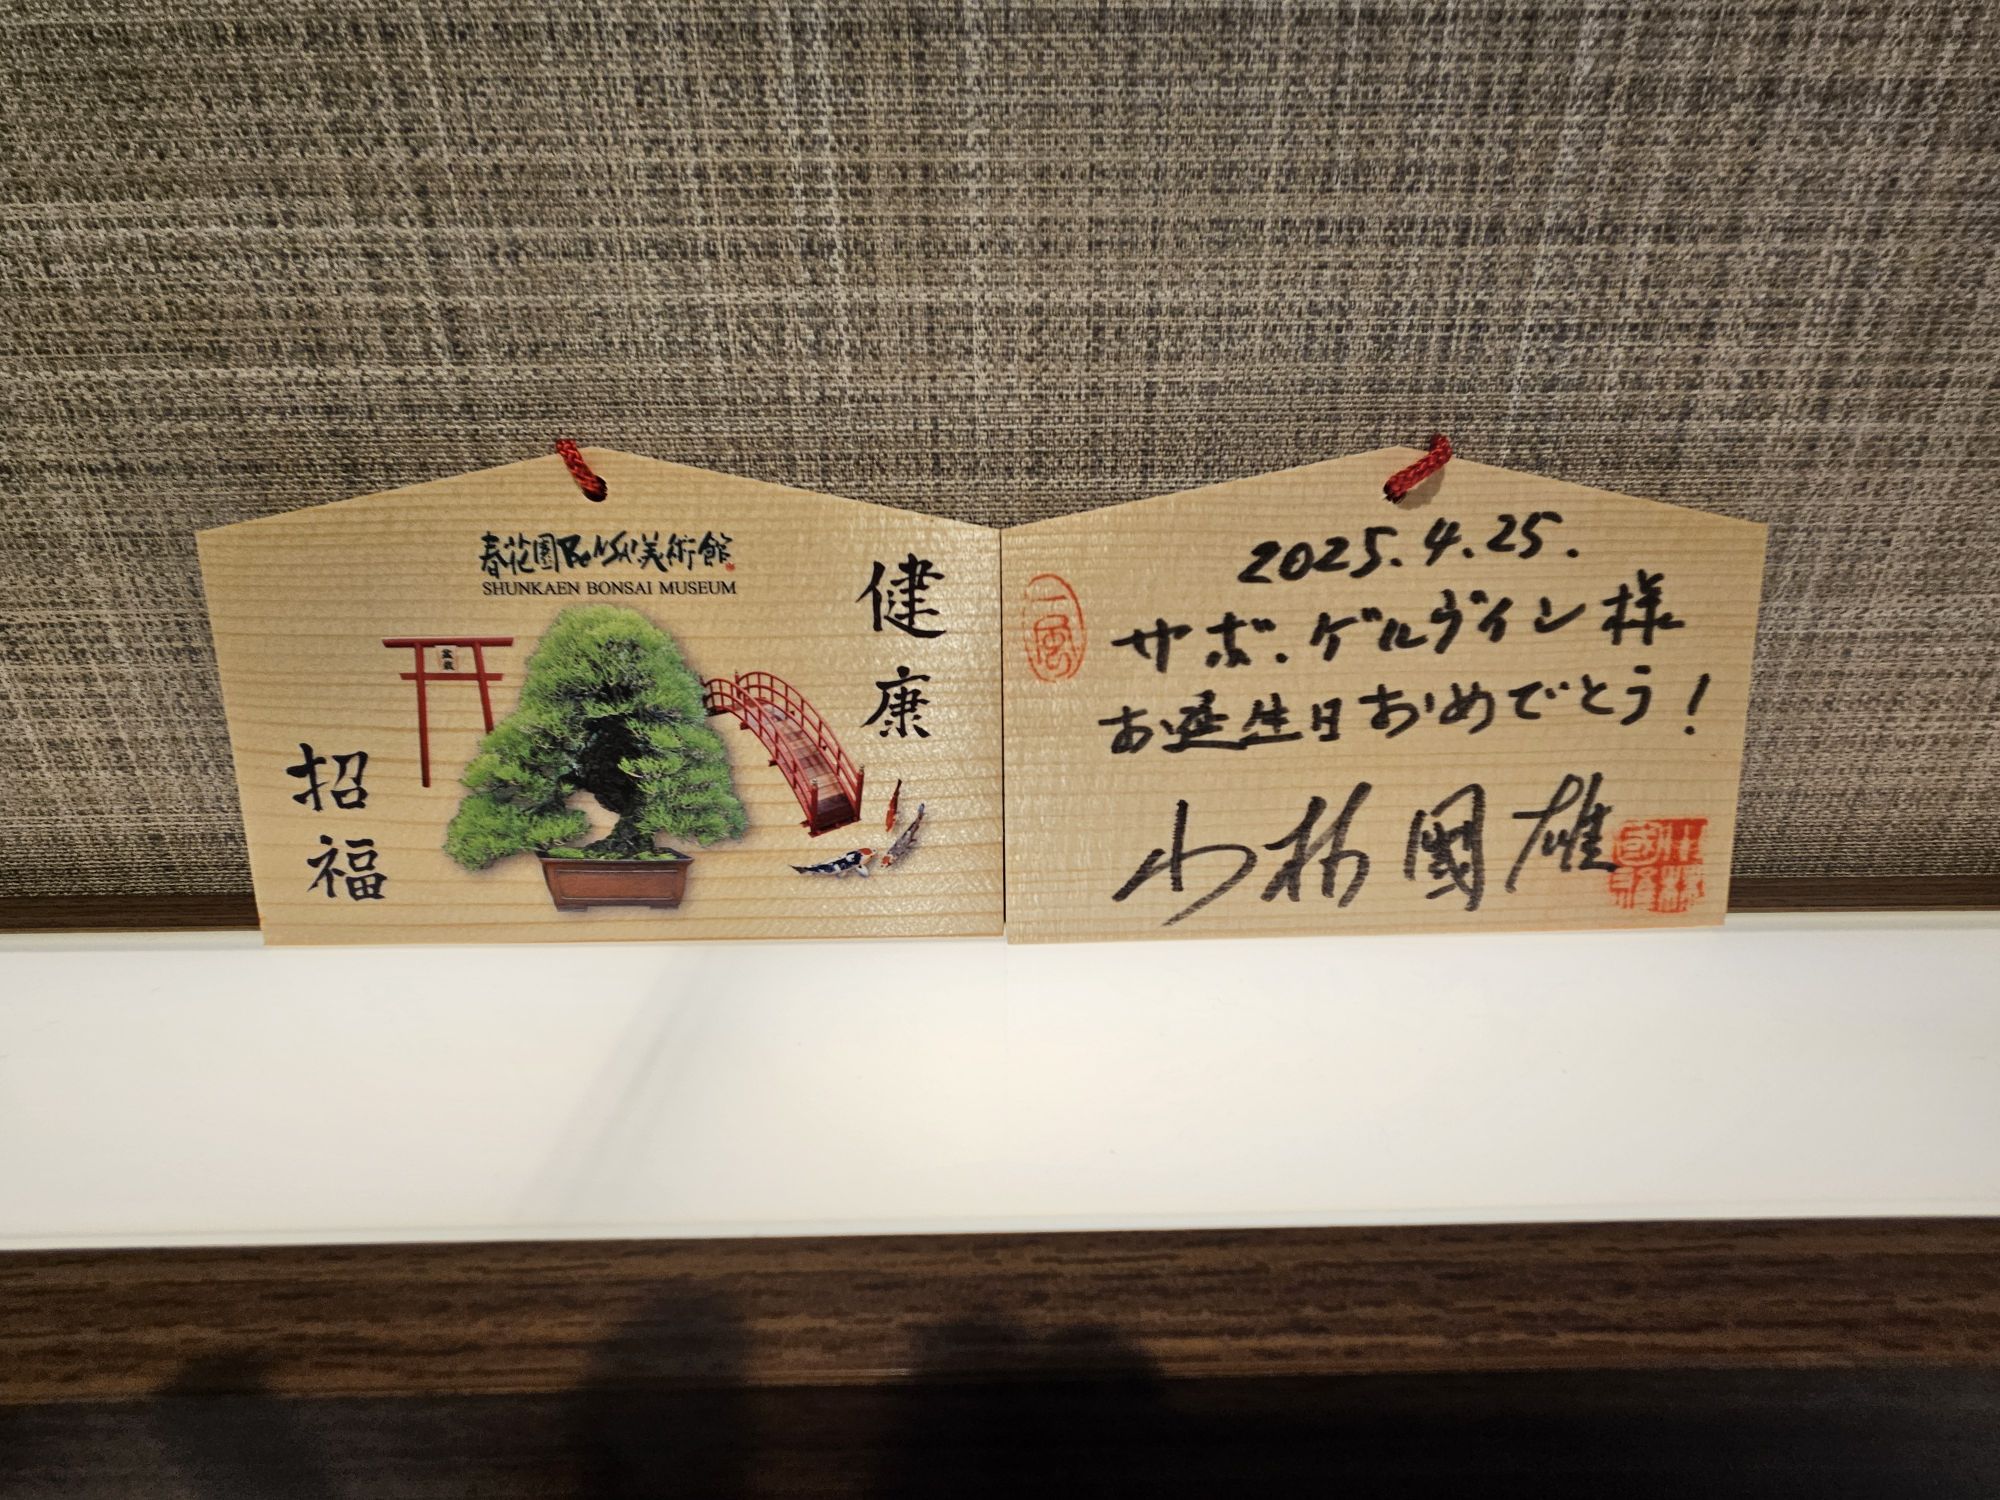 春花園BONSAI美術館
SHUNKAEN BONSAI MUSEUM
健康
招福
盆栽
2025.4.25.
サボ.ゲルヴィン様
お誕生日おめでとう!
小林國雄
一風